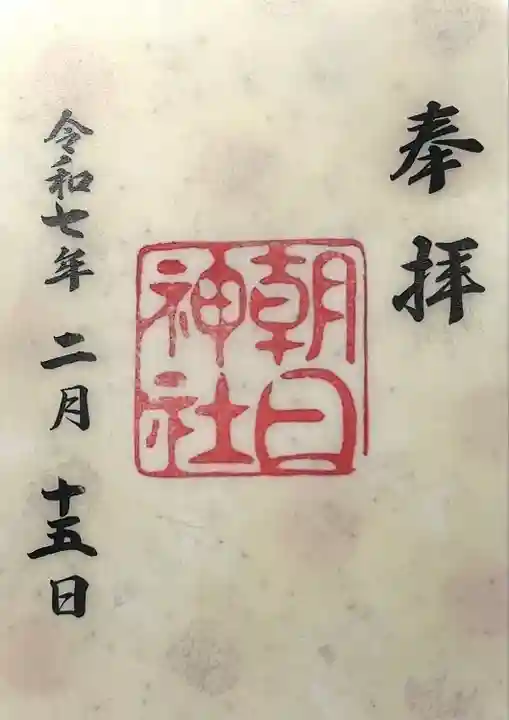 奉拝
朝日
神社
令和七年 二月 十五日